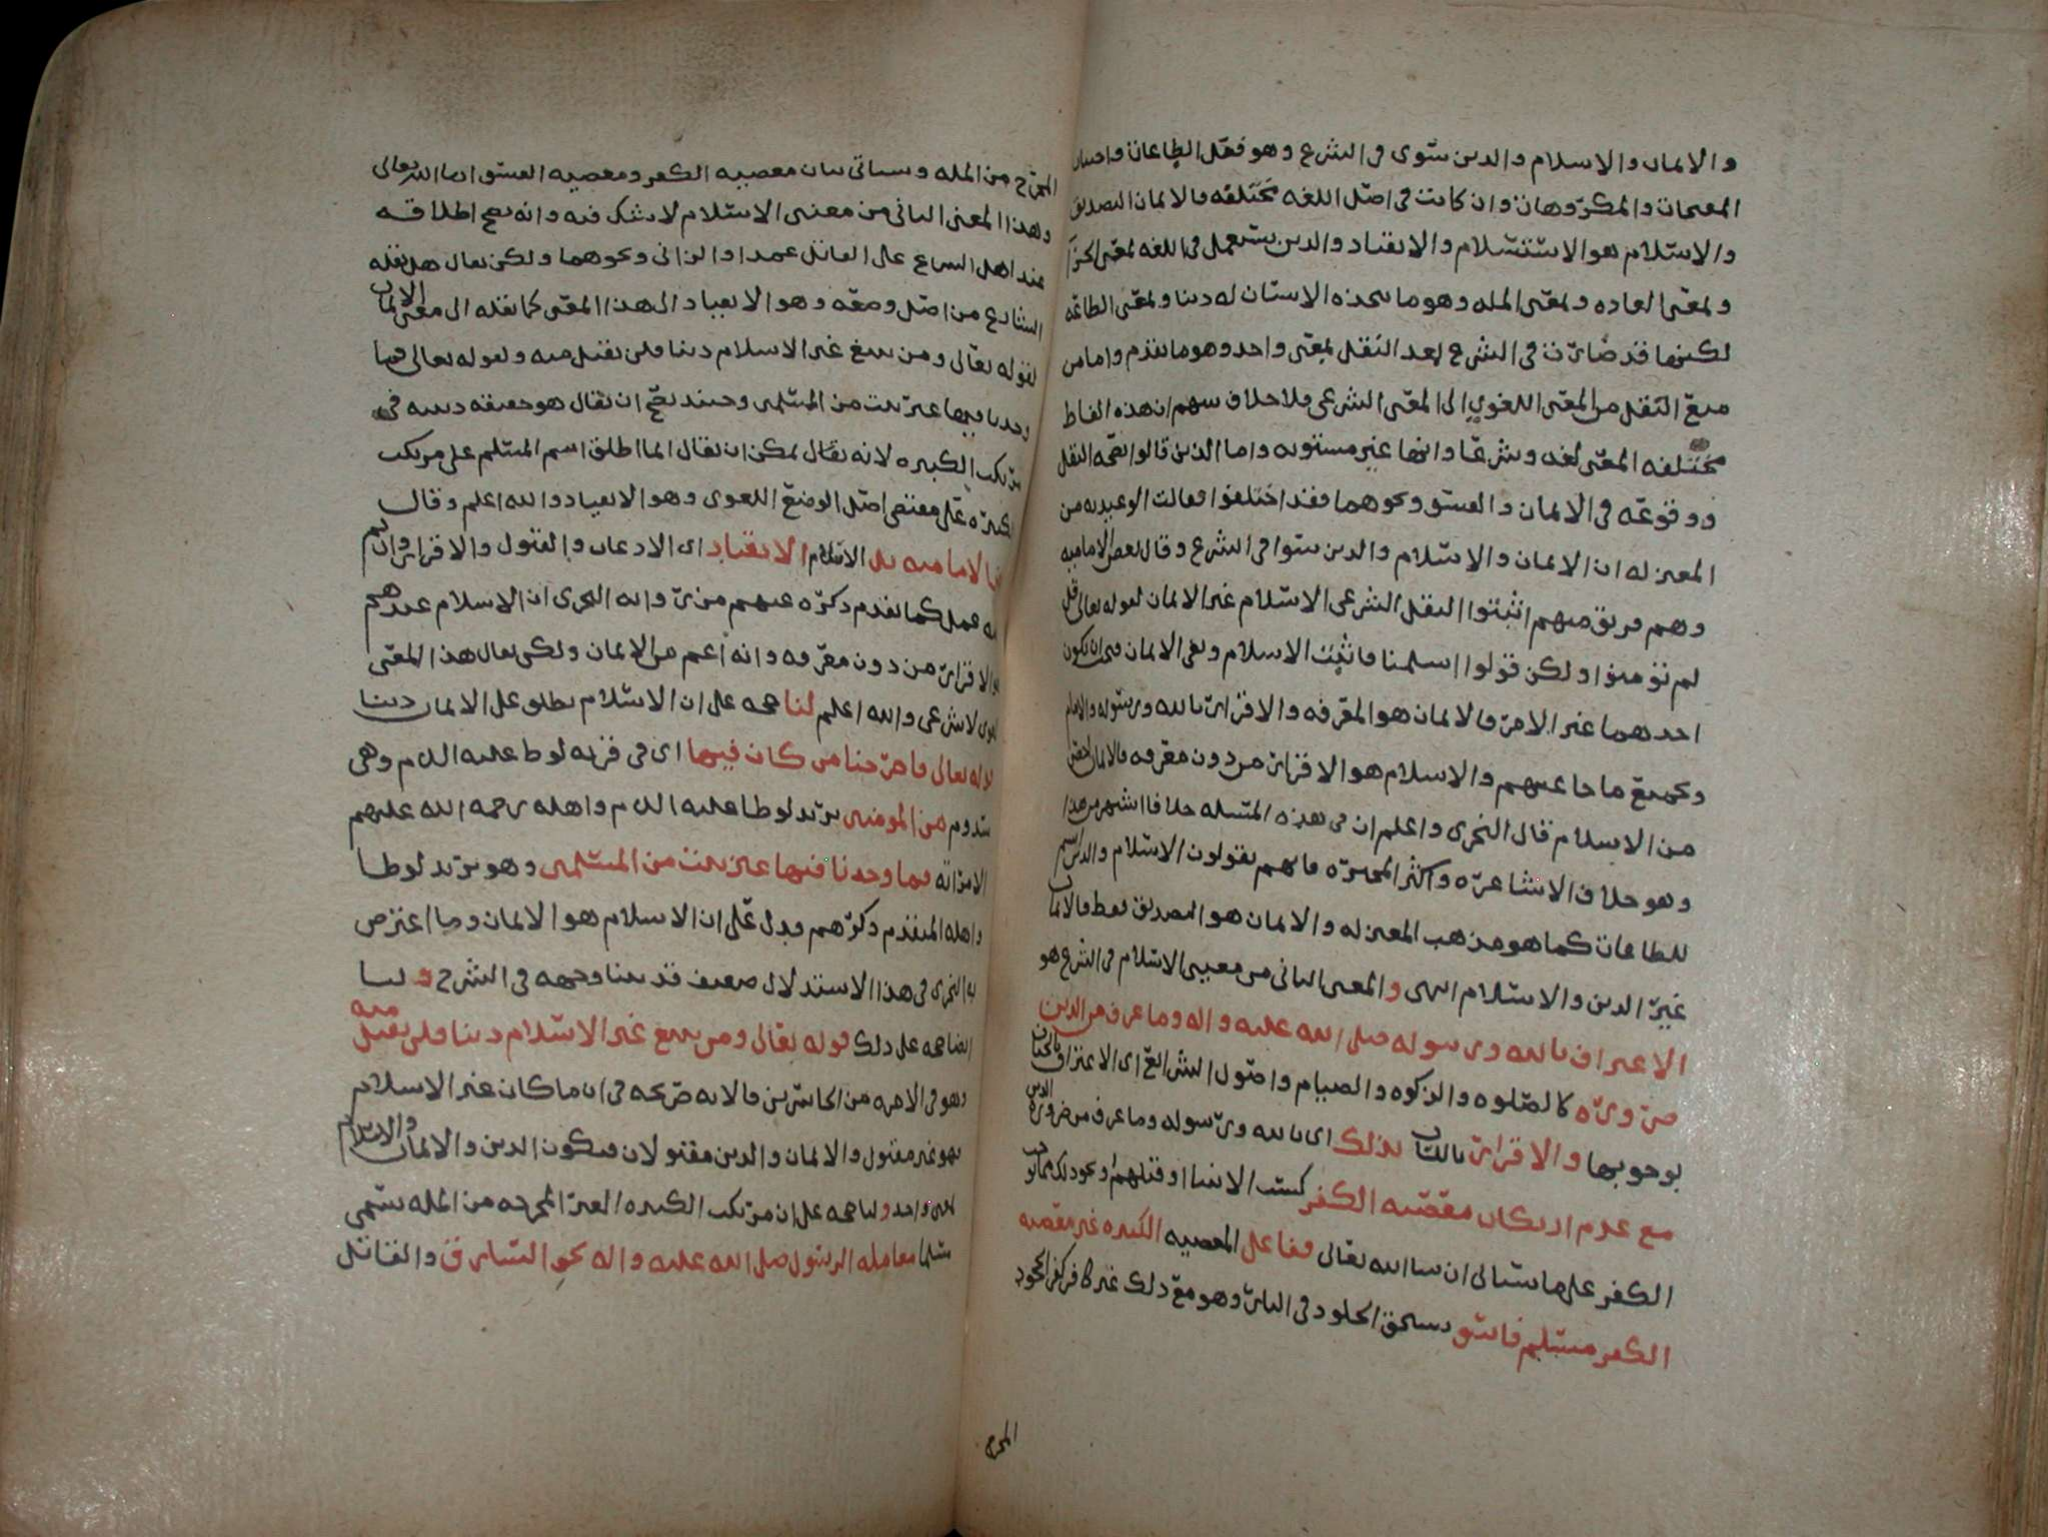 والايمان والاسلام والدين سوى في الشرع وهو فعل الطاعات واجتناب
المقبحات والمكروهات وان كانت في اصل اللغه مختلفه فالايمان التصديق
والاسلام هو الاستسلام والانقياد والدين يستعمل في اللغه بمعنى الجزآ
وبمعنى العاده وبمعنى المله وهو ما يتخذه الانسان له دينا وبمعنى الطاعه
لكنها قد صارت في الشرع بعد النقل بمعنى واحد وهو ما تقدم واما من
منع النقل من المعنى اللغوي الى المعنى الشرعي فلا خلاف بينهم ان هذه الفاظ
مختلفه المعنى لغه وشرعا وانها غير مستويه واما الذين قالوا بصحه النقل
ووقوعه في الايمان والفسق ونحوهما فقد اختلفوا فقالت الوعيديه من
المعتزله ان الايمان والاسلام والدين سوا في الشرع وقال بعض الاماميه
وهم فريق منهم اثبتوا النقل الشرعي الاسلام غير الايمان لقوله تعالى قل
لم تؤمنوا ولكن قولوا اسلمنا فاثبت الاسلام ونفى الايمان فيجب ان يكون
احدهما غير الاخر فالايمان هو المعرفه والاقرار بالله ورسوله والامام
وبجميع ما جا عنهم والاسلام هو الاقرار من دون معرفه فالايمان اخص
من الاسلام قال النجري واعلم ان في هذه المسئله خلافا اشهر من هذا
وهو خلاف الاشاعره واكثر المجبره فانهم يقولون الاسلام والدين اسم
للطاعات كما هو مذهب المعتزله والايمان هو التصديق فقط فالايمان
غير الدين والاسلام انتهى والمعنى الثاني من معنيي الاسلام في الشرع هو
الاعتراف بالله ورسوله صلى الله عليه واله وما عرف من الدين
ضروره كالصلوه والزكوه والصيام واصول الشرائع اى الاعتراف بالجنان
بوجوبها والاقرار باللسان بذلك اى بالله ورسوله وما عرف من ضروره الدين
مع عدم ارتكاب معصيه الكفر كسب الانبيا او قتلهم او نحو ذلك مما يوجب
الكفر على ما سياتي ان شا الله تعالى ففاعل المعصيه الكبيره غير معصيه
الكفر مسلم فاسق يستحق الخلود في النار وهو مع ذلك غير كافر كفر الجحود
المخرج
المخرج من المله وسياتي بيان معصيه الكفر ومعصيه الفسق ان شا الله تعالى
وهذا المعنى الثاني من معنى الاسلام لا شك فيه وانه يصح اطلاقه
عند اهل الشرع على القاتل عمدا والزاني ونحوهما ولكن يقال هل نقله
الشارع من اصل وضعه وهو الانقياد الى هذا المعنى كما نقله الى معنى الايمان
لقوله تعالى ومن يبتغ غير الاسلام دينا فلن يقبل منه ولقوله تعالى فما
وجدنا فيها غير بيت من المسلمين وحينئذ يصح ان يقال هو حقيقه دينيه في
مرتكب الكبيره لانه يقال يمكن ان يقال انما اطلق اسم المسلم على مرتكب
الكبيره على مقتضى اصل الوضع اللغوي وهو الانقياد والله اعلم وقال
الاماميه بل الاسلام الانقياد اى الاذعان والقبول والاقرار وان لم
عمل كما تقدم ذكره عنهم من روايه النجري ان الاسلام عندهم
الاقرار من دون معرفه وانه اعم من الايمان ولكن يقال هذا المعنى
لغوى لا شرعي والله اعلم لنا حجه على ان الاسلام يطلق على الايمان دينا
قوله تعالى فاخرجنا من كان فيها اى في قريه لوط عليه السلم وهي
سدوم من المومنين يريد لوطا عليه السلم واهله رحمه الله عليهم
الا امراته فما وجدنا فيها غير بيت من المسلمين وهو يريد لوطا
واهله المتقدم ذكرهم فدل على ان الاسلام هو الايمان وما اعترض
به النجري في هذا الاستدلال ضعيف قد بينا وجهه في الشرح ولنا
ايضا حجه على ذلك قوله تعالى ومن يبتغ غير الاسلام دينا فلن يقبل منه
وهو في الاخره من الخاسرين فالايه صريحه في ان ما كان غير الاسلام
فهو غير مقبول والايمان والدين مقبولان فيكون الدين والايمان والاسلام
بمعنى واحد ولنا حجه على ان مرتكب الكبيره الغير المخرجه من المله يسمى
مسلما معامله الرسول صلى الله عليه واله نحو السارق والقاتل